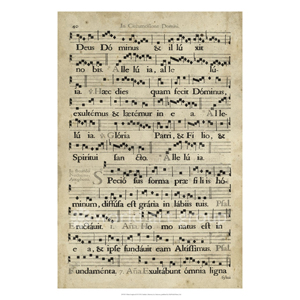 In Circumcisione Domini
Deus Dó minus & il lú xit
no bis. Alle lú ia, al le lú
ia. Hæc dies quam fecit Dóminus,
exultémus & lætémur in e a. Alle lú
ia. Glória Patri, & Fí lio, &
Spirítui san cto. Alle lú ia.
Speció sus forma præ fí li is hó-
minum, diffúsa est grátia in lábiis tu is. Psal.
Eructávit. Homo natus est in
e a, & ipse fundávit eam Altíssimus. Psal.
Fundaménta. Exultábunt ómnia ligna